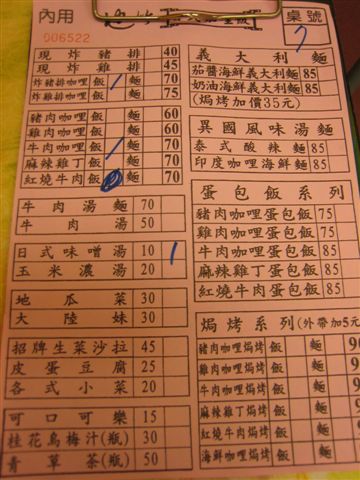 內用
006522
桌號
7
現炸豬排 40
現炸雞排 45
炸豬排咖哩 飯 / 麵 70
炸雞排咖哩 飯 麵 75
豬肉咖哩 飯 麵 60
雞肉咖哩 飯 麵 60
牛肉咖哩 飯 / 麵 70
麻辣雞丁 飯 麵 70
紅燒牛肉 飯 麵 70
牛肉湯麵 70
牛肉湯 50
日式味噌湯 10 1
玉米濃湯 20
地瓜菜 30
大陸妹 30
招牌生菜沙拉 45
皮蛋豆腐 25
各式小菜 20
可口可樂 15
桂花烏梅汁(瓶) 30
青草茶(瓶) 50
義大利麵
茄醬海鮮義大利麵 85
奶油海鮮義大利麵 85
(焗烤加價35元)
異國風味湯麵
泰式酸辣麵 85
印度咖哩海鮮麵 85
蛋包飯系列
豬肉咖哩蛋包飯 75
雞肉咖哩蛋包飯 75
牛肉咖哩蛋包飯 85
麻辣雞丁蛋包飯 85
紅燒牛肉蛋包飯 85
焗烤系列(外帶加5元
豬肉咖哩焗烤 飯 麵
雞肉咖哩焗烤 飯 麵
牛肉咖哩焗烤 飯 麵
麻辣雞丁焗烤 飯 麵
紅燒牛肉焗烤 飯 麵
海鮮咖哩焗烤 飯 麵